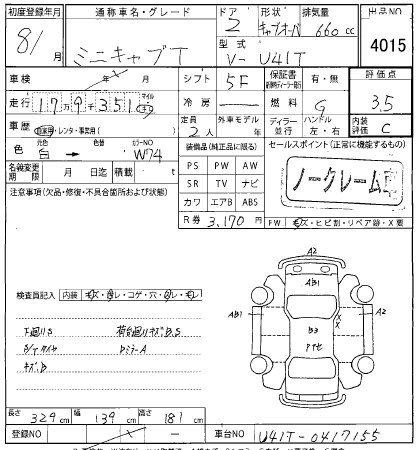 初度登録年月 8/ 月
通称車名・グレード ミニキャブT
ドア 2 形状 キャブオーバ 排気量 660 cc
型式 V- U41T
出品NO 4015
車検 年 X 月
シフト 5F
保証書 有・無
評価点 3.5
走行 17万9千351 マイル キロ
冷房
燃料 G
車歴 自家用・レンタ・事業用( )
定員 2人
外車モデル 年
ディーラー 並行
ハンドル 左・右
内装評価 C
色 元色 白 → 色替 カラーNO W74
装備品(純正品に限る)
セールスポイント(正常に機能するもの)
ノークレーム車
名義変更期限 月 日迄 積載 t
PS PW AW
SR TV ナビ
カワ エアB ABS
R券 3,170円
注意事項(欠品・修復・不具合箇所および状態)
FW キズ・ヒビ割・リペア跡・X要
A2
AB1
AB1
A2
X
X
B3
アイセ
A2
検査員記入 内装 キズ・汚レ・コゲ・穴・切レ・モレ
下廻りS 荷台廻りキズB.S
S/Tタイヤ Dミラー A
キズ.B
長さ 329 cm 幅 139 cm 高さ 181 cm
登録NO — X —
車台NO U41T-0417155